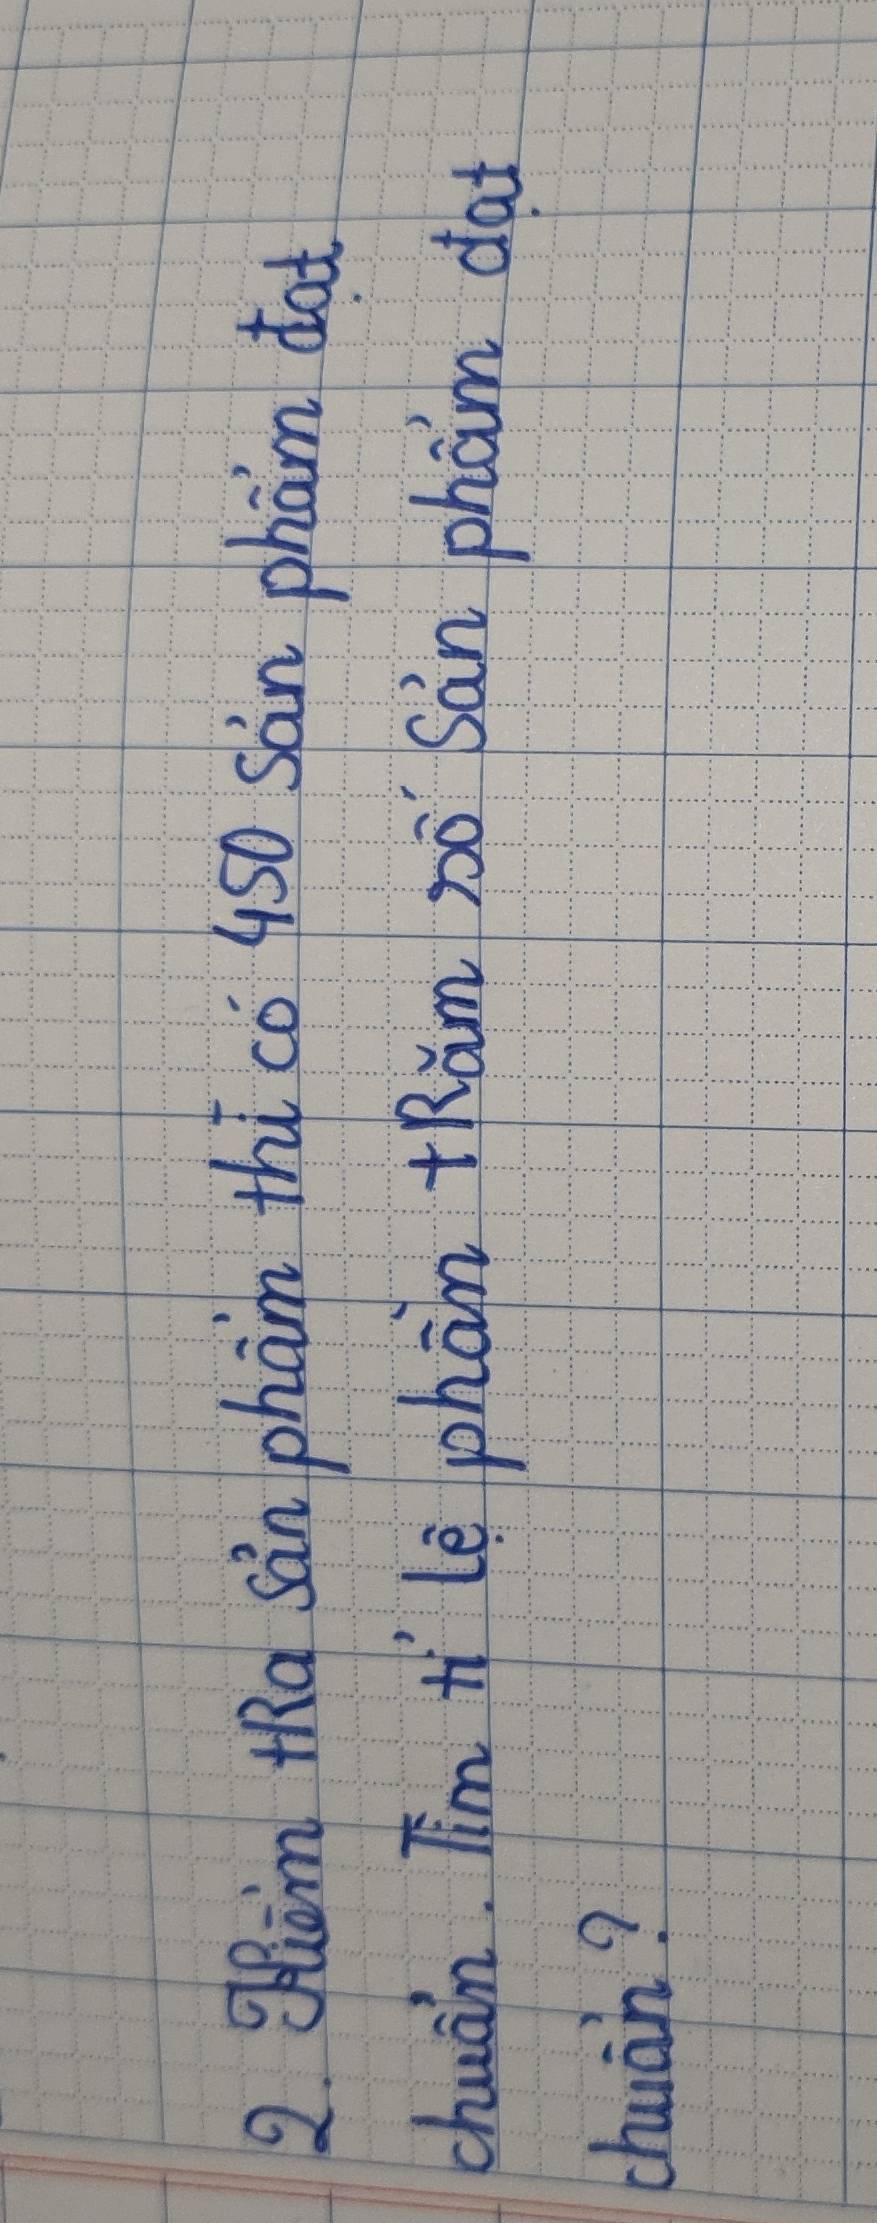 2. Kiểm tRa sản phẩm thì có 450 sản phẩm đạt
chuẩn. Tìm tỉ lệ phần tRăm số sản phẩm đạt
chuẩn?